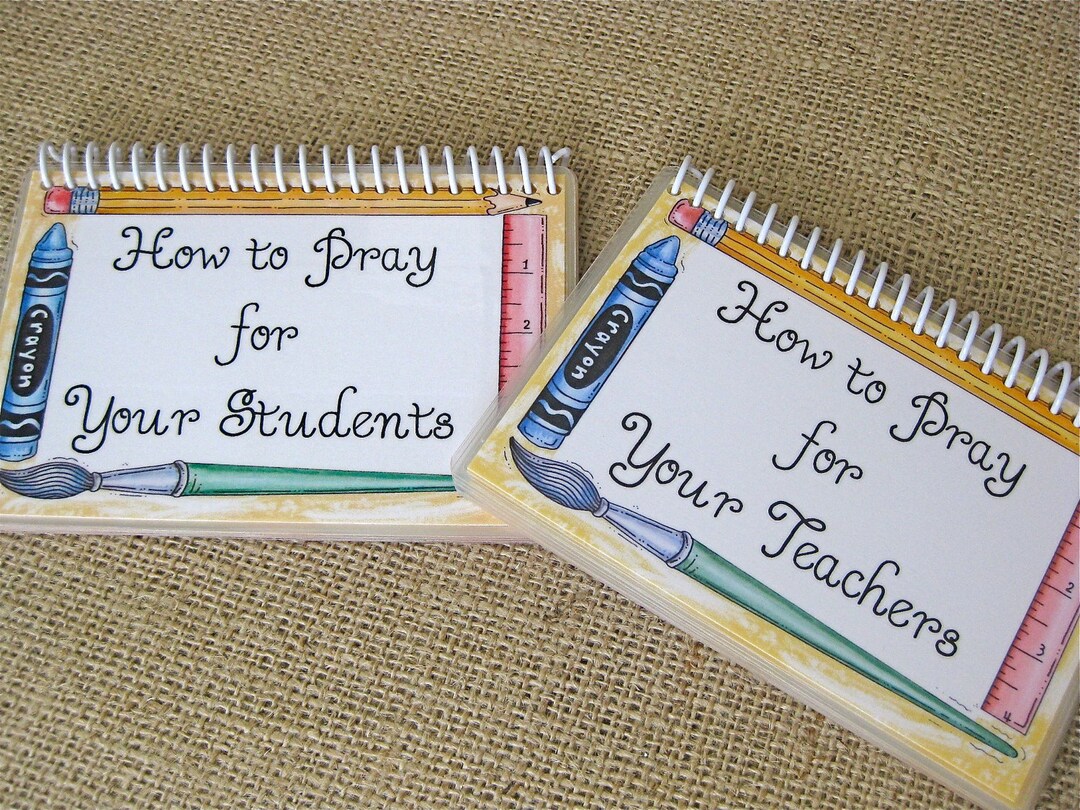 How to Pray
for
Your Students
Crayon
1
2
How to Pray
for
Your Teachers
Crayon
2
3
4